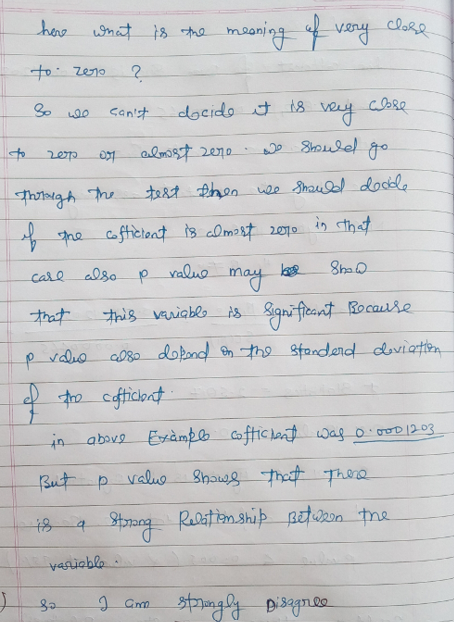 here what is the meaning of very close
to zero ?
So we can't decide it is very close
to zero or almost zero. we should go
through the test then we should decide
if the cofficient is almost zero in that
case also p value may show
that this variable is significant Because
p value also depend on the standerd deviation
of the cofficient.
in above Example cofficient was 0.0001203
But p value shows that There
is a strong Relationship Between the
variable.
) so I am strongly Disagree